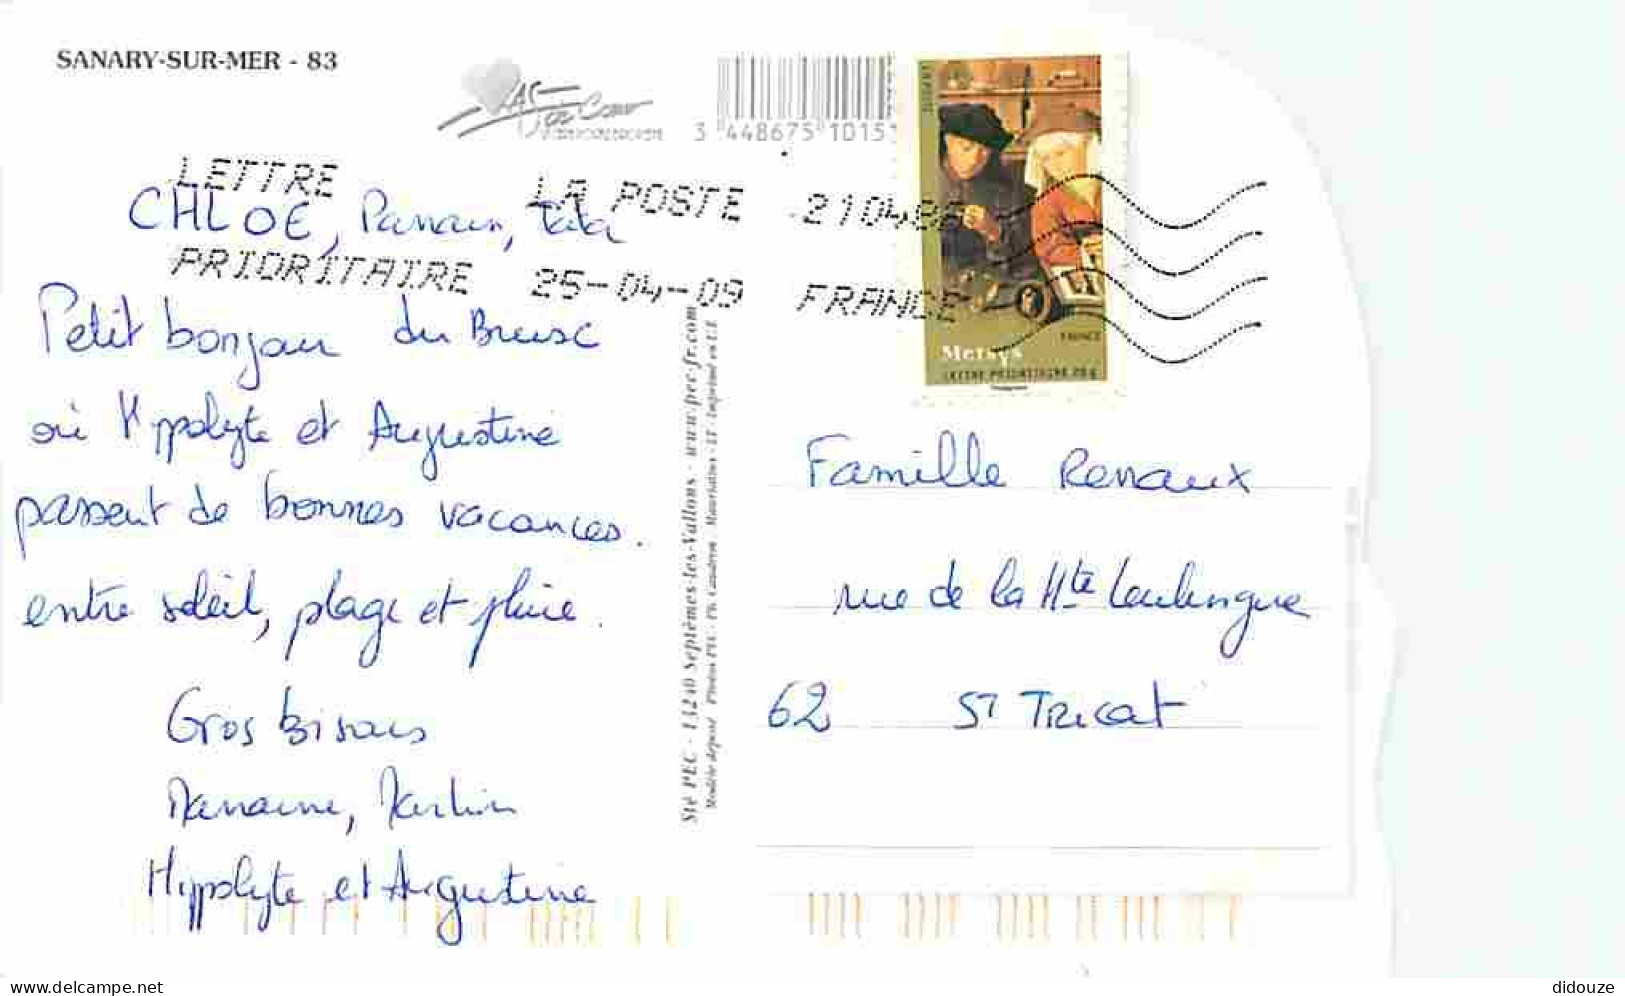 SANARY-SUR-MER - 83
3 448675 10151
LETTRE LA POSTE 210486
PRIORITAIRE 25-04-09 FRANCE
LA POSTE
Metsys
FRANCE
LETTRE PRIORITAIRE 20 g
CHLOE, Parrain, tata
Petit bonjour du Brusc
où Hippolyte et Augustine
passent de bonnes vacances.
entre soleil, plage et pluie.
Gros bisous
Marraine, Martin
Hippolyte et Augustine
Sté PEC - 13240 Septèmes-les-Vallons - www.pec-fr.com
Modèle déposé Photos PEC
Imprimé en U.E.
Famille Renaux
rue de la Hte
62 St Tricat
delcampe.net
didouze